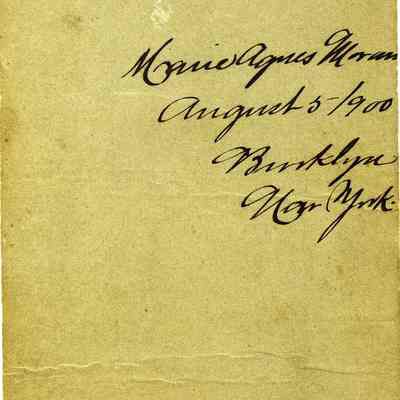 Marie Agnes Moran
August 5-1900
Brooklyn
New York.